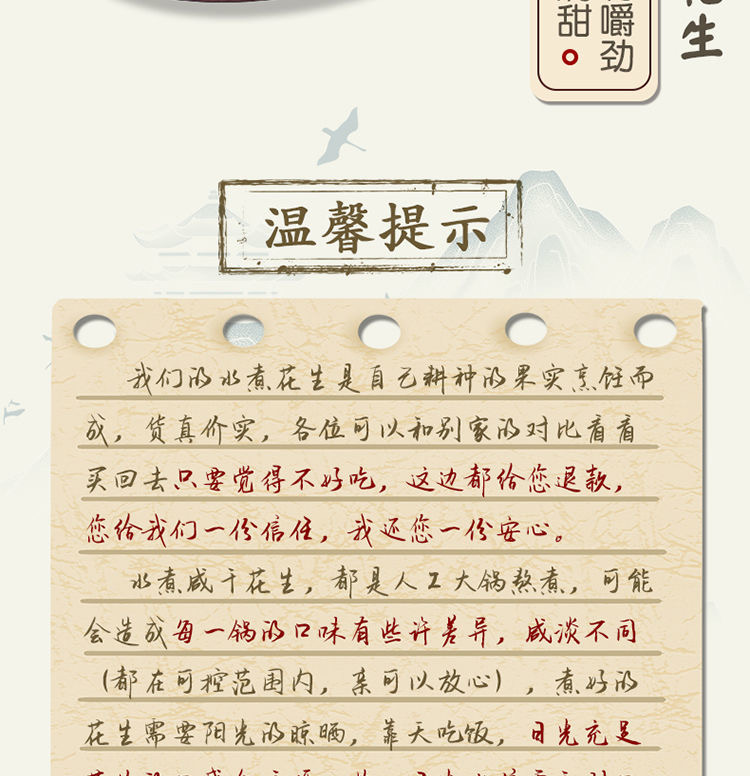 嚼劲
甜
生
温馨提示
我们的水煮花生是自己耕种的果实烹饪而
成，货真价实，各位可以和别家的对比看看
买回去只要觉得不好吃，这边都给您退款，
您给我们一份信任，我还您一份安心。
水煮咸干花生，都是人工大锅熬煮，可能
会造成每一锅的口味有些许差异，咸淡不同
（都在可控范围内，亲可以放心），煮好的
花生需要阳光的晾晒，靠天吃饭，日光充足